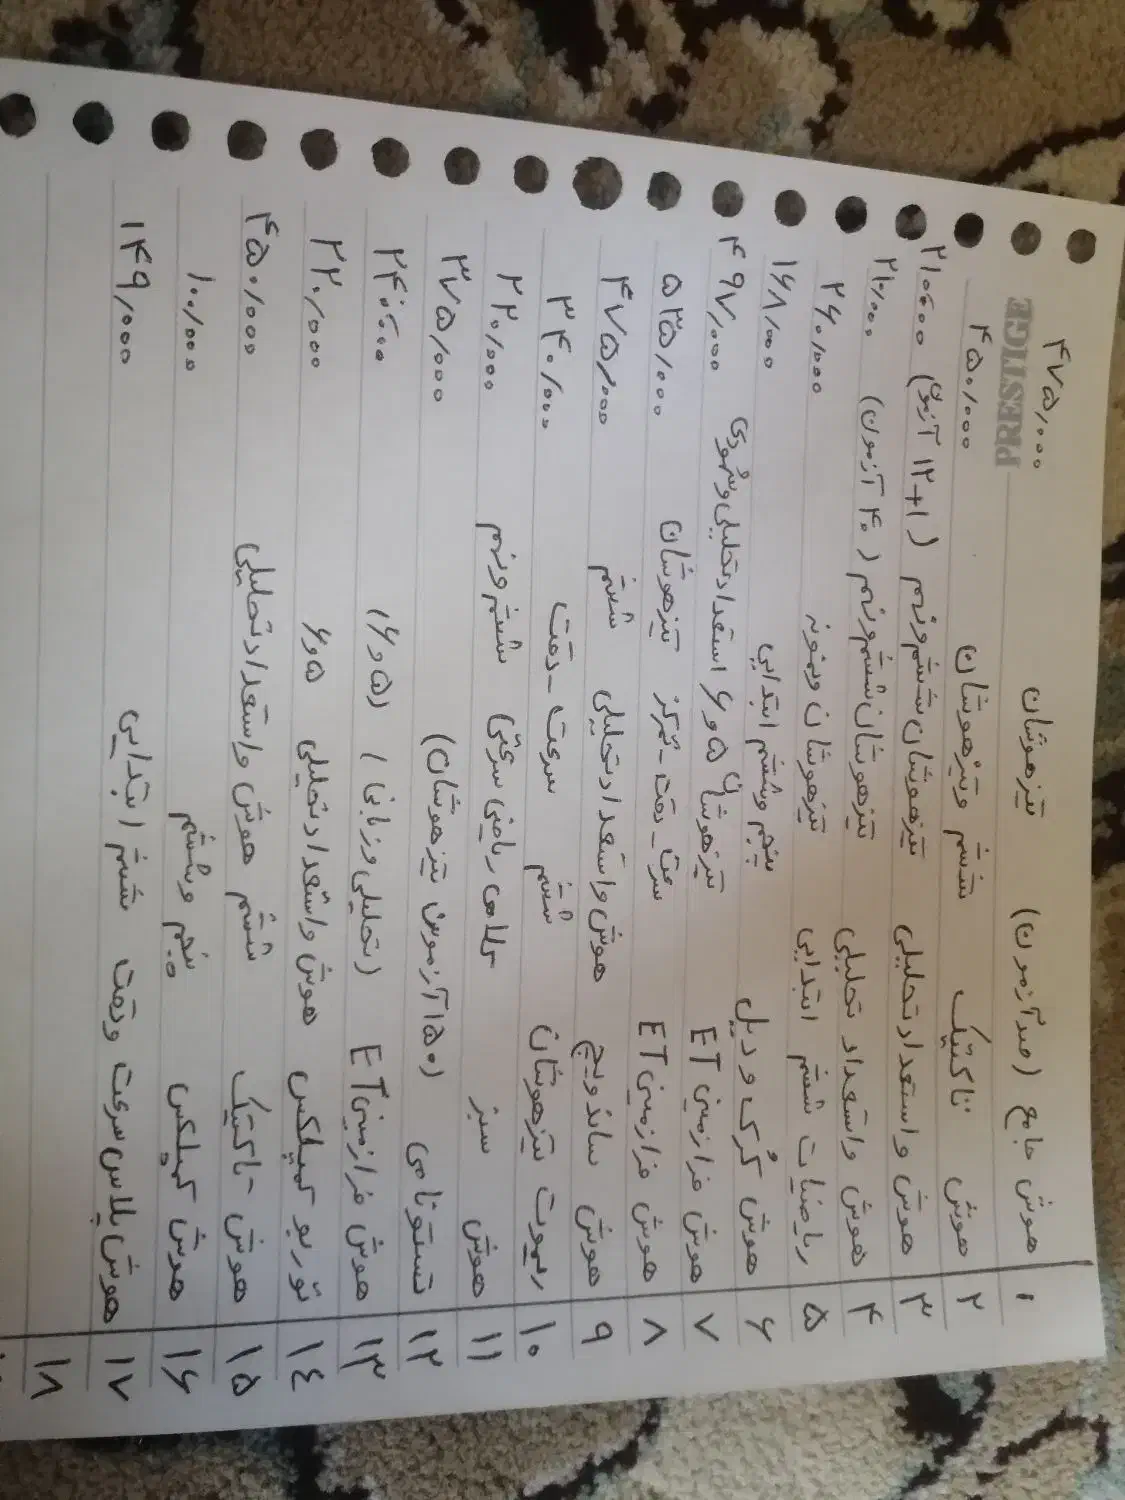 PRESTIGE
۱ هوش جامع (صد آزمون) تیزهوشان ۴۷۵/۰۰۰
۲ هوش تاکتیک ششم وتیزهوشان ۴۵۰/۰۰۰
۳ هوش واستعداد تحلیلی تیزهوشان ششم ونهم (۱+۱۲ آزمون) ۲۱۰۰۰۰
۴ هوش واستعداد تحلیلی تیزهوشان ششم ونهم (۴۰ آزمون) ۲۱۰/۰۰۰
۵ ریاضیات ششم ابتدایی تیزهوشان ونمونه ۲۶۰/۰۰۰
۶ هوش گرگ و دیل پنجم وششم ابتدایی ۱۶۸/۰۰۰
۷ هوش فرازمینی ET تیزهوشان ۵و۶ استعداد تحلیلی وشهودی ۴۹۷/۰۰۰
۸ هوش فرازمینی ET سرعت-دقت-تمرکز تیزهوشان ۵۳۵/۰۰۰
۹ هوش ساندویچ هوش واستعداد تحلیلی ششم ۴۷۵/۰۰۰
۱۰ ریموت تیزهوشان ششم سرعت-دقت ۳۴۰/۰۰۰
۱۱ هوش سبز کلاهی ریاضی سرعتی ششم ونهم ۲۲۰/۰۰۰
۱۲ تستونامی (۱۵۰ آزمون تیزهوشان) ۳۷۵/۰۰۰
۱۳ هوش فرازمینی ET (تحلیلی وزبانی) (۵و۶) ۲۴۰۰۰۰
۱٤ توربو کمپلکس هوش واستعداد تحلیلی ۵و۶ ۲۲۰/۰۰۰
۱۵ هوش تاکتیک ششم هوش واستعداد تحلیلی ۴۵۰/۰۰۰
۱۶ هوش کمپلکس پنجم وششم ۱۰۰/۰۰۰
۱۷ هوش پلاس سرعت ودقت ششم ابتدایی ۱۴۹/۰۰۰
۱۸